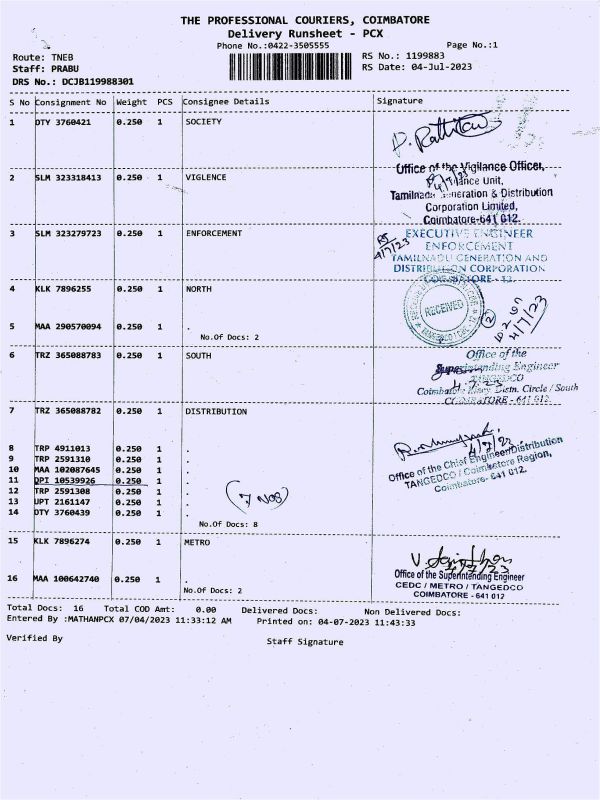 THE PROFESSIONAL COURIERS, COIMBATORE
Delivery Runsheet - PCX
Phone No.:0422-3505555 Page No.:1
Route: TNEB RS No.: 1199883
Staff: PRABU RS Date: 04-Jul-2023
DRS No.: DCJB119988301
S No Consignment No Weight PCS Consignee Details Signature
1 DTY 3760421 0.250 1 SOCIETY
2 SLM 323318413 0.250 1 VIGLENCE
Office of the Vigilance Officer,
4/7/23
Vigilance Unit,
Tamilnadu Generation & Distribution
Corporation Limited,
Coimbatore-641 012.
3 SLM 323279723 0.250 1 ENFORCEMENT
4/7/23
EXECUTIVE ENGINEER
ENFORCEMENT
TAMILNADU GENERATION AND
DISTRIBUTION CORPORATION
COIMBATORE - 12.
4 KLK 7896255 0.250 1 NORTH
RECEIVED
2
4/7/23
5 MAA 290570094 0.250 1 .
No.Of Docs: 2
6 TRZ 365088783 0.250 1 SOUTH
Office of the
Superintending Engineer
TANGEDCO
4.7.23
Coimbatore Elecy Distn. Circle / South
COIMBATORE - 641 012.
7 TRZ 365088782 0.250 1 DISTRIBUTION
8 TRP 4911013 0.250 1 .
9 TRP 2591310 0.250 1 .
10 MAA 102087645 0.250 1 .
11 DPI 10539926 0.250 1 .
12 TRP 2591308 0.250 1 .
13 UPT 2161147 0.250 1 .
14 DTY 3760439 0.250 1 .
(7 Nos)
No.Of Docs: 8
4/7/23
Office of the Chief Engineer/Distribution
TANGEDCO / Coimbatore Region,
Coimbatore- 641 012.
15 KLK 7896274 0.250 1 METRO
16 MAA 100642740 0.250 1 .
No.Of Docs: 2
4/7/23
Office of the Superintending Engineer
CEDC / METRO / TANGEDCO
COIMBATORE - 641 012
Total Docs: 16 Total COD Amt: 0.00 Delivered Docs: Non Delivered Docs:
Entered By :MATHANPCX 07/04/2023 11:33:12 AM Printed on: 04-07-2023 11:43:33
Verified By Staff Signature